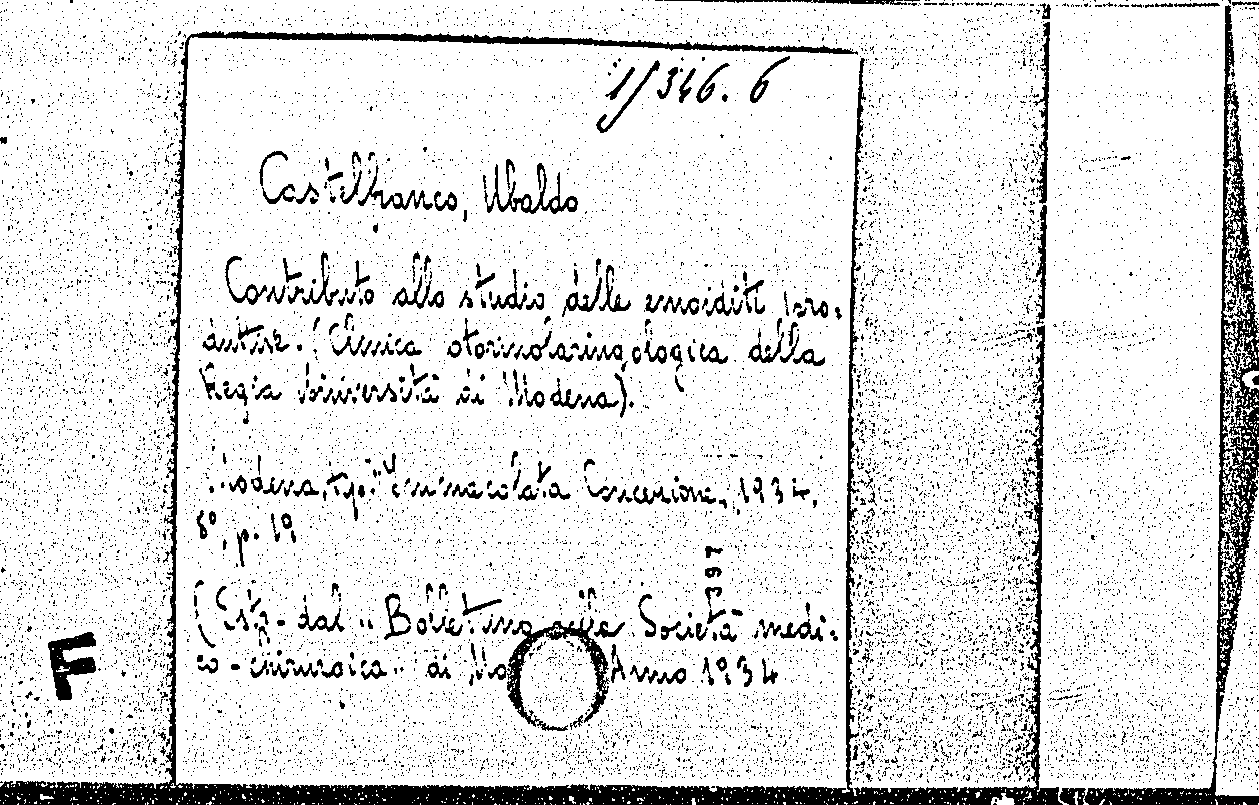 1/346.6
Castelfranco, Ubaldo
Contributo allo studio delle etmoiditi pro-
dutive. (Clinica otorinolaringologica della
Regia Università di Modena).
Modena, tip. Immacolata Concezione, 1934,
8°, p. 19
(Estr. dal "Bollettino della Società medi-
co-chirurgica" di Mo Anno 1934
F